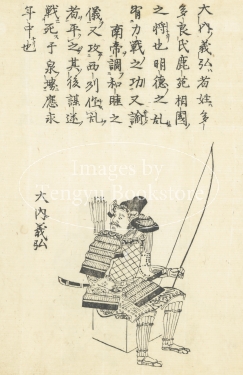 大内義弘若姓多
多良氏鹿苑相國
之將也明德之乱
有力戰之功又諭
南帝調和睦之
儀又攻西列作乱
若平之其後謀迷
戰死于泉堺應永
年中也
大内義弘
Images by
Tengyu Bookstore